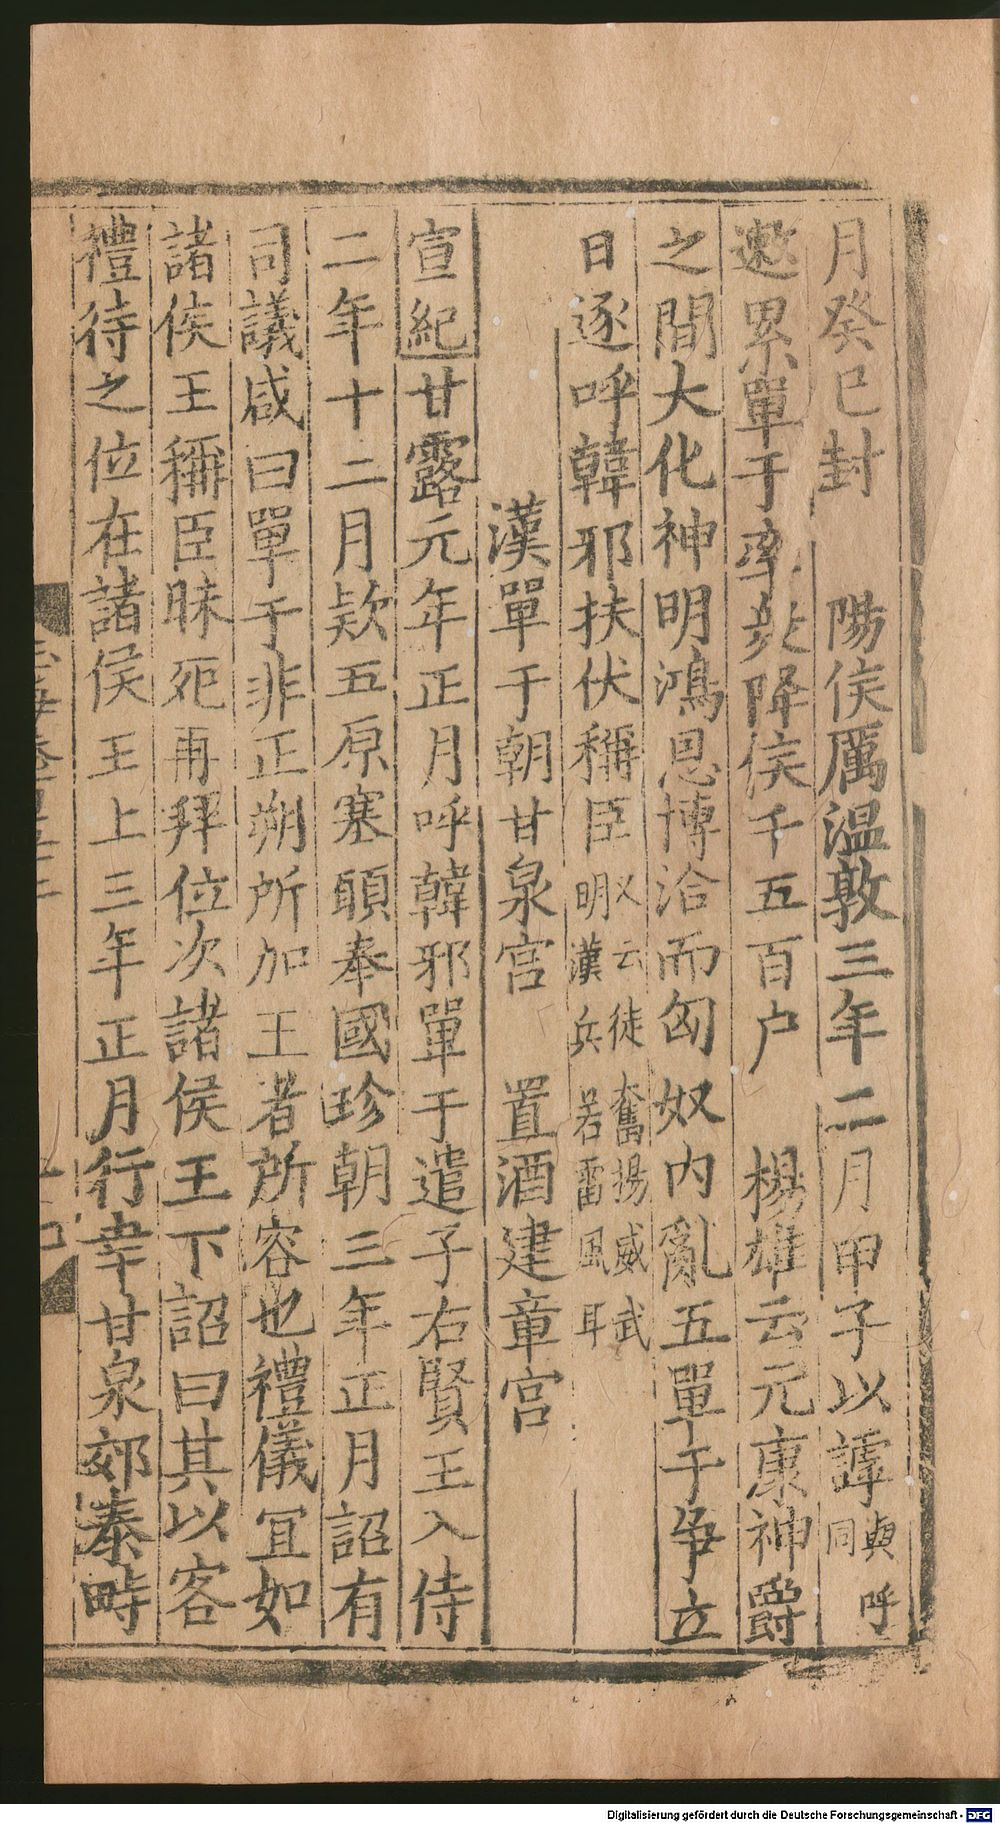 月癸巳封　陽侯厲温敦三年二月甲子以謼與呼同
遬累單于率衆降侯千五百户　楊雄云元康神爵
之間大化神明鴻恩博洽而匈奴内亂五單于爭立
日逐呼韓邪扶伏稱臣又云徒奮揚威武明漢兵若雷風耳
漢單于朝甘泉宫　置酒建章宫
宣紀甘露元年正月呼韓邪單于遣子右賢王入侍
二年十二月欵五原塞願奉國珍朝三年正月詔有
司議咸曰單于非正朔所加王者所容也禮儀宜如
諸侯王稱臣昧死再拜位次諸侯王下詔曰其以客
禮待之位在諸侯王上三年正月行幸甘泉郊泰畤
Digitalisierung gefördert durch die Deutsche Forschungsgemeinschaft - DFG